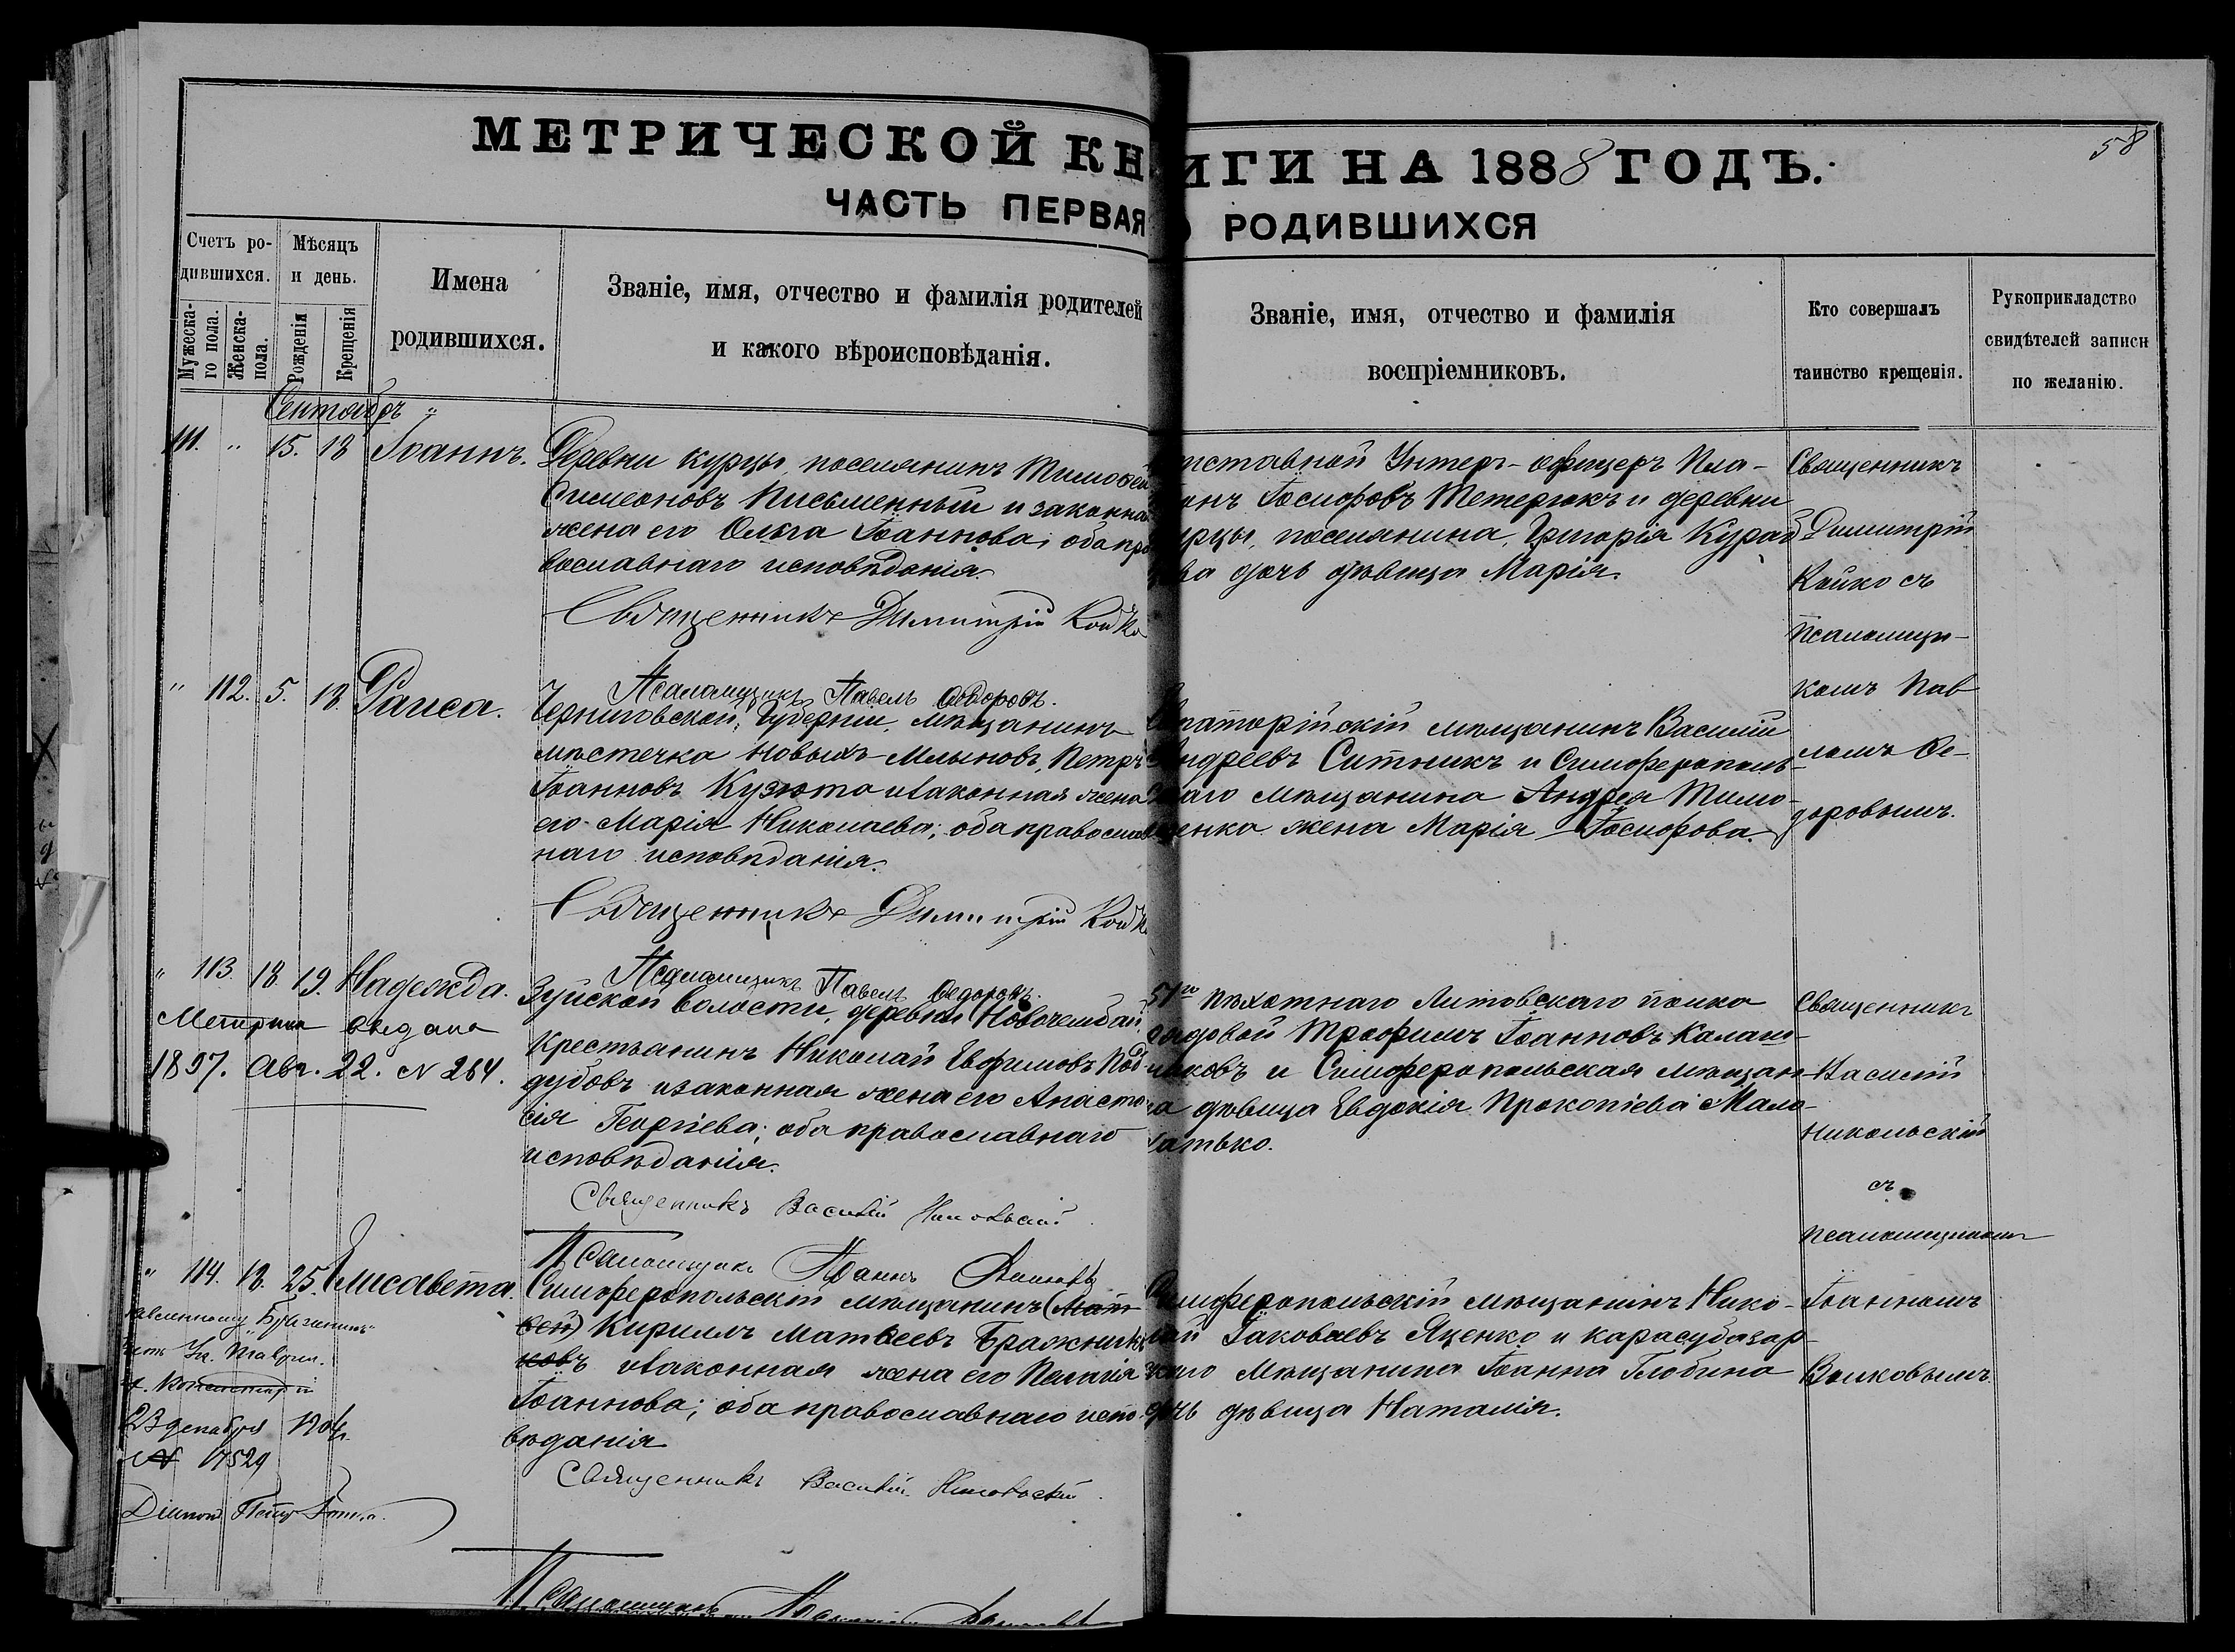 58
МЕТРИЧЕСКОЙ КНИГИ НА 1888 ГОДЪ.
ЧАСТЬ ПЕРВАЯ О РОДИВШИХСЯ
Счетъ ро-
дившихся.
Мужеска-
го пола.
Женска-
пола.
Мѣсяцъ
и день.
Рожденія
Крещенія
Имена
родившихся.
Званіе, имя, отчество и фамилія родителей
и какого вѣроисповѣданія.
Званіе, имя, отчество и фамилія
воспріемниковъ.
Кто совершалъ
таинство крещенія.
Рукоприкладство
свидѣтелей записи
по желанію.
Сентябрь
111. " 15. 18 Іоаннъ.
Деревни Курцы, поселянинъ Тимофей
Симеоновъ Письменный и законная
жена его Ольга Іоаннова; оба пра
вославнаго исповѣданія.
Священникъ Димитрій Койко
Псаломщикъ Павелъ Ѳедоровъ.
Отставной Унтеръ-офицеръ Пла-
тонъ Іосифовъ Тетерюкъ и деревни
Курцы, поселянина, Григорія Кураб
ва дочь дѣвица Марія.
Священникъ
Димитрій
Койко съ
псаломщи-
комъ Пав
ломъ Ѳе-
доровымъ.
" 112. 5. 18. Раиса.
Черниговской, Губерніи, мѣщанинъ
мѣстечка Новыхъ-Млыновъ, Петръ
Іоанновъ Кузюта изаконная жена
его Марія Николаева; оба православ
наго исповѣданія.
Священникъ Димитрій Койко
Псаломщикъ Павелъ Ѳедоровъ.
Евпаторійскій мѣщанинъ Василій
Андреевъ Ситникъ и Симферополь-
скаго мѣщанина Андрея Тимо-
щенка жена Марія Іосифова.
" 113. 18. 19. Надежда.
Метрика выдана
1897. Авг. 22. N 264.
Зуйской волости, деревни Новочембай,
крестьанинъ Николай Евфимовъ Под-
дубовъ изаконная жена его Анаста
сія Георгіева; оба православнаго
исповѣданія.
Священникъ Василій Никольскій
Псаломщикъ Іоаннъ Волковъ
51го пѣхотнаго Литовскаго полка
рядовой Трофимъ Іоанновъ Калаш-
никовъ и Симферопольская мѣщан-
ка дѣвица Евдокія Прокопіева Мало-
хатько.
Священникъ
Василій
Никольскій
съ
псаломщикомъ
Іоанномъ
Волковымъ
" 114. 18. 25. Елисавета.
N 17529
Симферопольскій мѣщанинъ (Мат
вей) Кириллъ Матвеевъ Бражни
ковъ изаконная жена его Пелагія
Іоаннова; оба православнаго испо-
вѣданія
Священникъ Василій Никольскій.
Псаломщикъ Іоаннъ Волковъ
Симферопольскій мѣщанинъ Нико-
лай Іаковлевъ Яценко и карасубазар-
скаго мѣщанина Іоанна Глобина
дочь дѣвица Наталія.